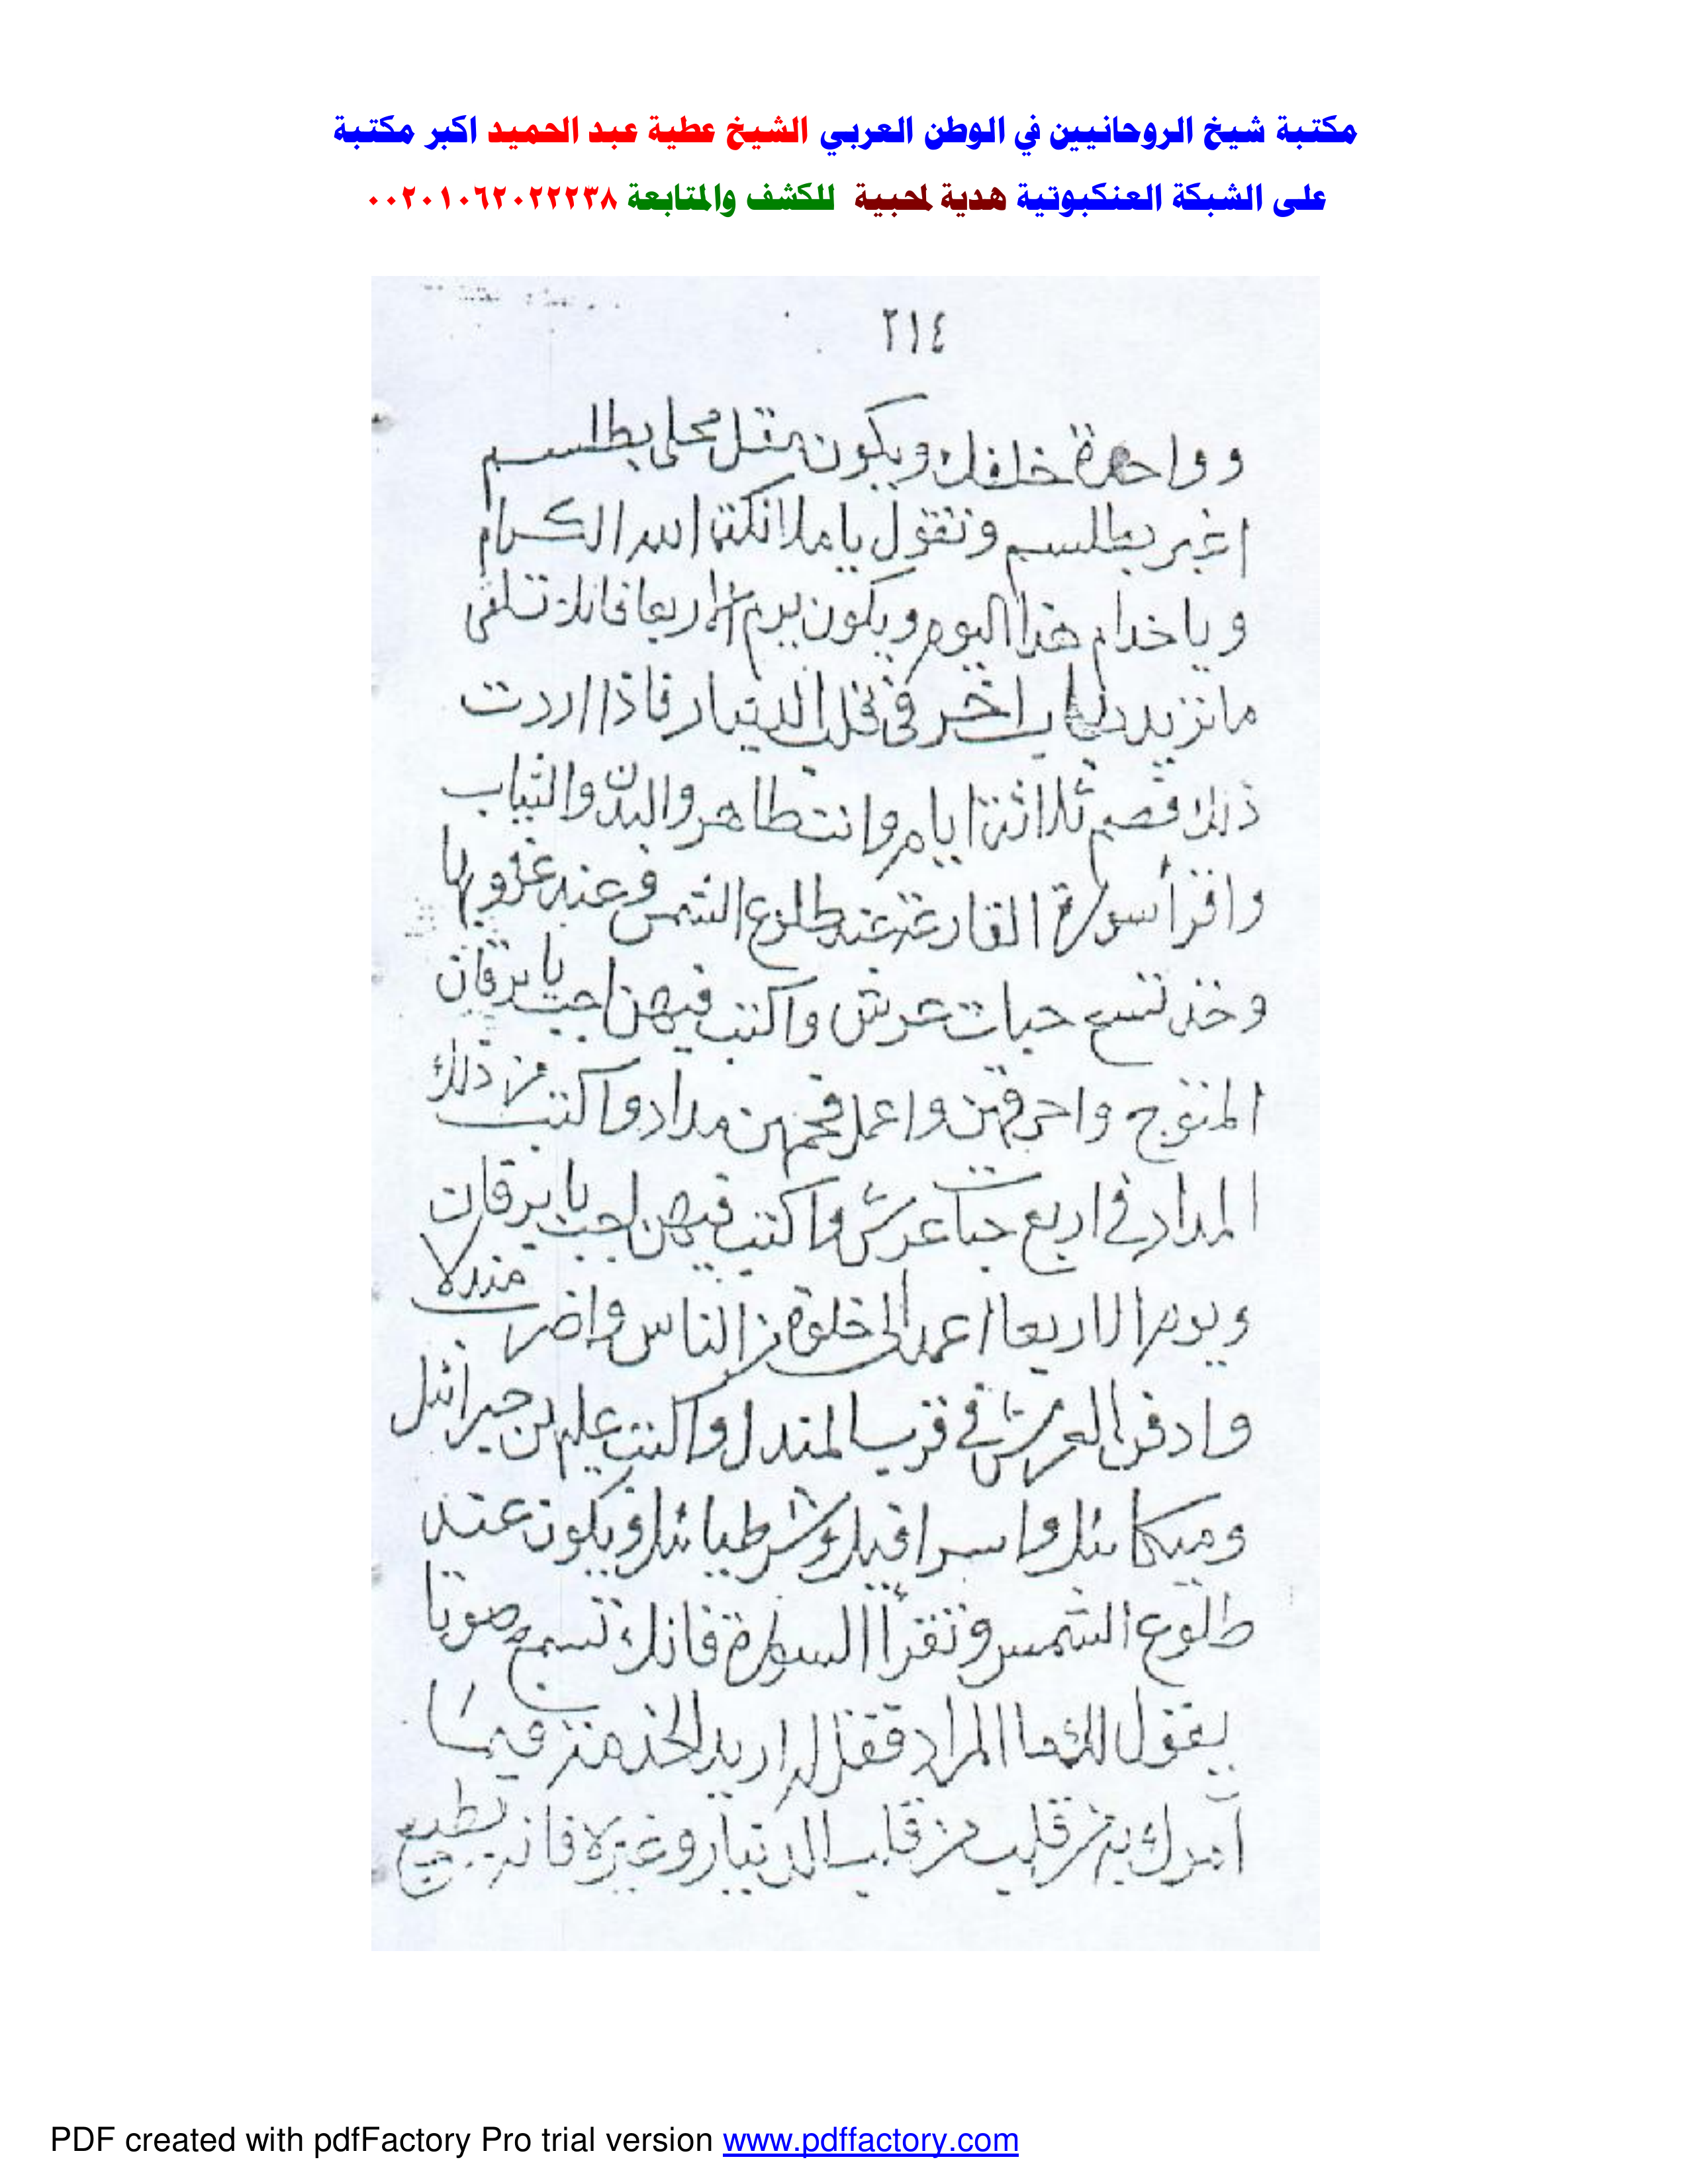 مكتبة شيخ الروحانيين في الوطن العربي الشيخ عطية عبد الحميد اكبر مكتبة
على الشبكة العنكبوتية هدية لمحبية للكشف والمتابعة ٠٠٢٠١٠٦٢٠٢٢٢٣٨
٢١٤
وواحدة خلفك ويكون مثل محلى بطلسم
اغبر بطلسم وتقول يا ملائكة الله الكرام
ويا خدام هذا اليوم ويكون يوم الاربعا فانك تلقى
ما تزيد باب اخر فى قلب الدينار فاذا اردت
ذلك فصم ثلاثة ايام وانت طاهر والبدن والثياب
واقرأ سورة القارعة عند طلوع الشمس وعند غروبها
وخذ تسع حبات عرش واكتب فيهن اجب يا برقان
المتوج واحرقهن واعمل فحمهن مداد واكتب من ذلك
المداد في اربع حبات عرش واكتب فيهن اجب يا برقان
ويوم الاربعا اعمد الى خلوة من الناس واضرب مندلا
وادفن العرش في قرب المندل واكتب عليهن جبرائل
وميكائل واسرافيل وشرطيائل ويكون عند
طلوع الشمس وتقرأ السورة فانك تسمع صوتا
يقول لك ما المراد فقل له اريد الخدمة فيما
آمرك به من قلب الدينار وغيره فانه يطيع
PDF created with pdfFactory Pro trial version www.pdffactory.com